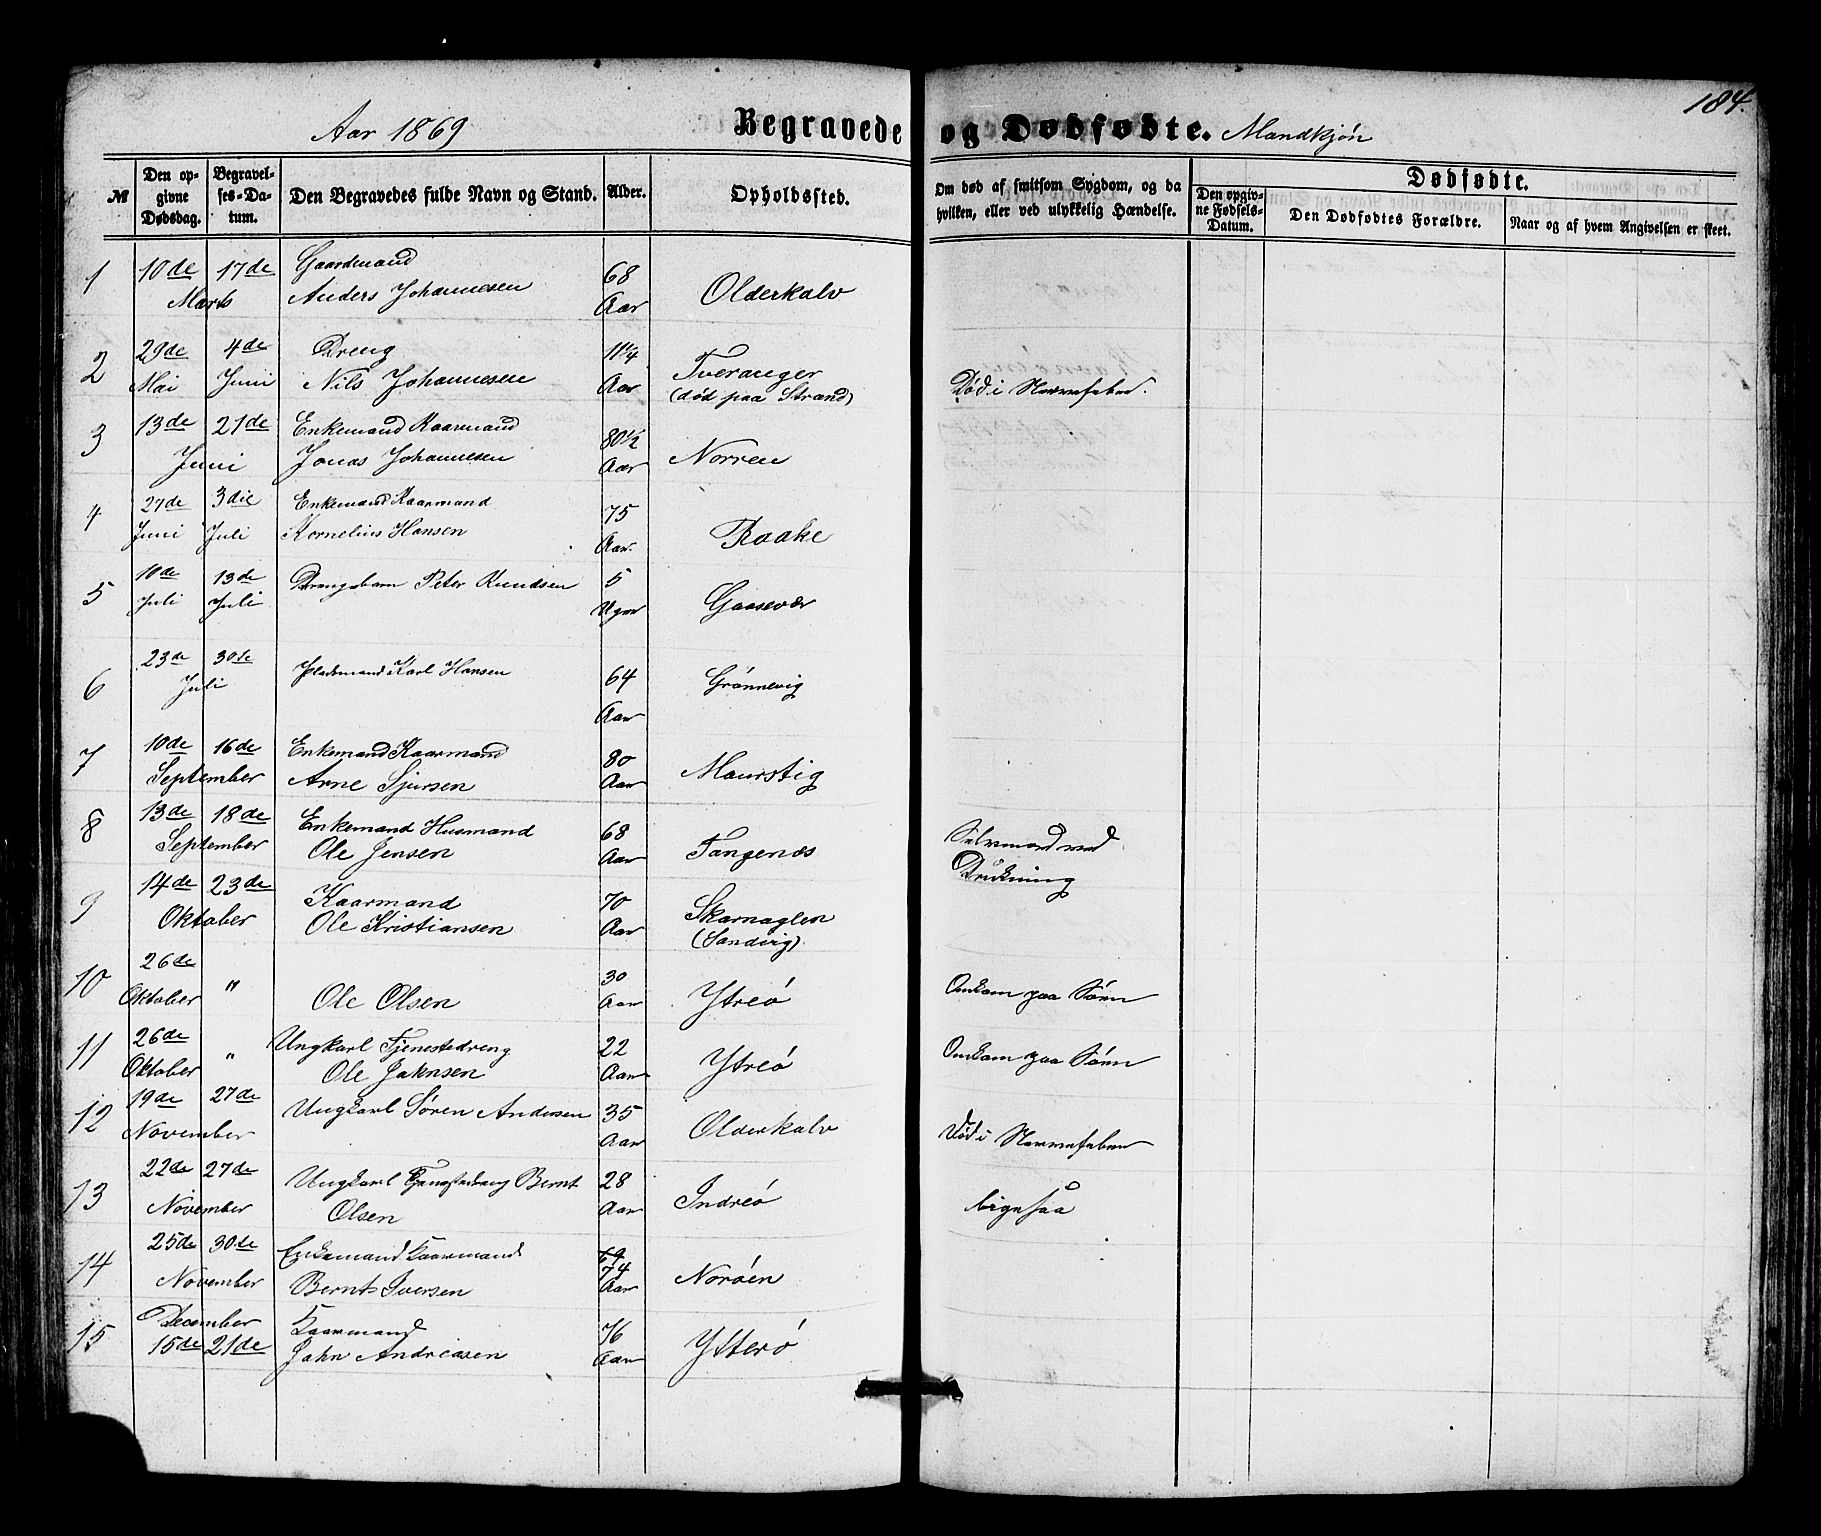 184.
Aar 1869 Begravede og Dødfødte. Mandkjøn
№ Den opgivne Dødsdag. Begravelses-Datum. Den Begravedes fulde Navn og Stand. Alder. Opholdssted. Om død af smitsom Sygdom, og da hvilken, eller ved ulykkelig Hændelse. Dødfødte.
Den opgivne Fødsels-Datum. Den Dødfødtes Forældre. Naar og af hvem Angivelsen er skeet.
1 10de 17de Gaardmand 68
Marts Anders Johannesen Aar Olderkalv
2 29de 4de Dreng 11¼ Tveranger
Mai Juni Nils Johannesen Aar (død paa Strand) Død i Nervefeber.
3 13de 21de Enkemand Kaarmand 80½
Juni Jonas Johannesen Aar Norren
4 27de 3die Enkemand Kaarmand 75
Juni Juli Kornelius Hansen Aar. Raake
5 10de 13de Drengebarn Peter Knudsen 5
Juli Juli Uger Gaasevær
6 23de 30te Pladsmand Karl Hansen 64 Grønnevig
Juli Aar
7 10de 16de Enkemand Kaarmand 80
September Arne Sjursen Aar Maurstig
8 13de 18de Enkemand Husmand 68 Selvmord ved
September Ole Jensen Aar Tangenæs Drukning
9 14de 23de Kaarmand 70 Skarnaglen
Oktober Ole Kristiansen Aar (Sandvig)
10 26de 30
Oktober " Ole Olsen Aar Ytreö Omkom paa Søen
11 26de Ungkarl Tjenestedreng 22
Oktober " Ole Jaknsen Aar Ytreö Omkom paa Søen
12 19de 27de Ungkarl Søren Andersen 35
November Aar Olderkalv Død i Nervefeber
13 22de 27de Ungkarl Tjenestedreng Bernt 28
November Olsen Aar Indreö ligesaa
14 25de 30te Enkemand Kaarmand 69 74
November Bernt Iversen Aar Norøen
15 December Kaarmand 76
15de 21de John Andreasen Aar Ytterö